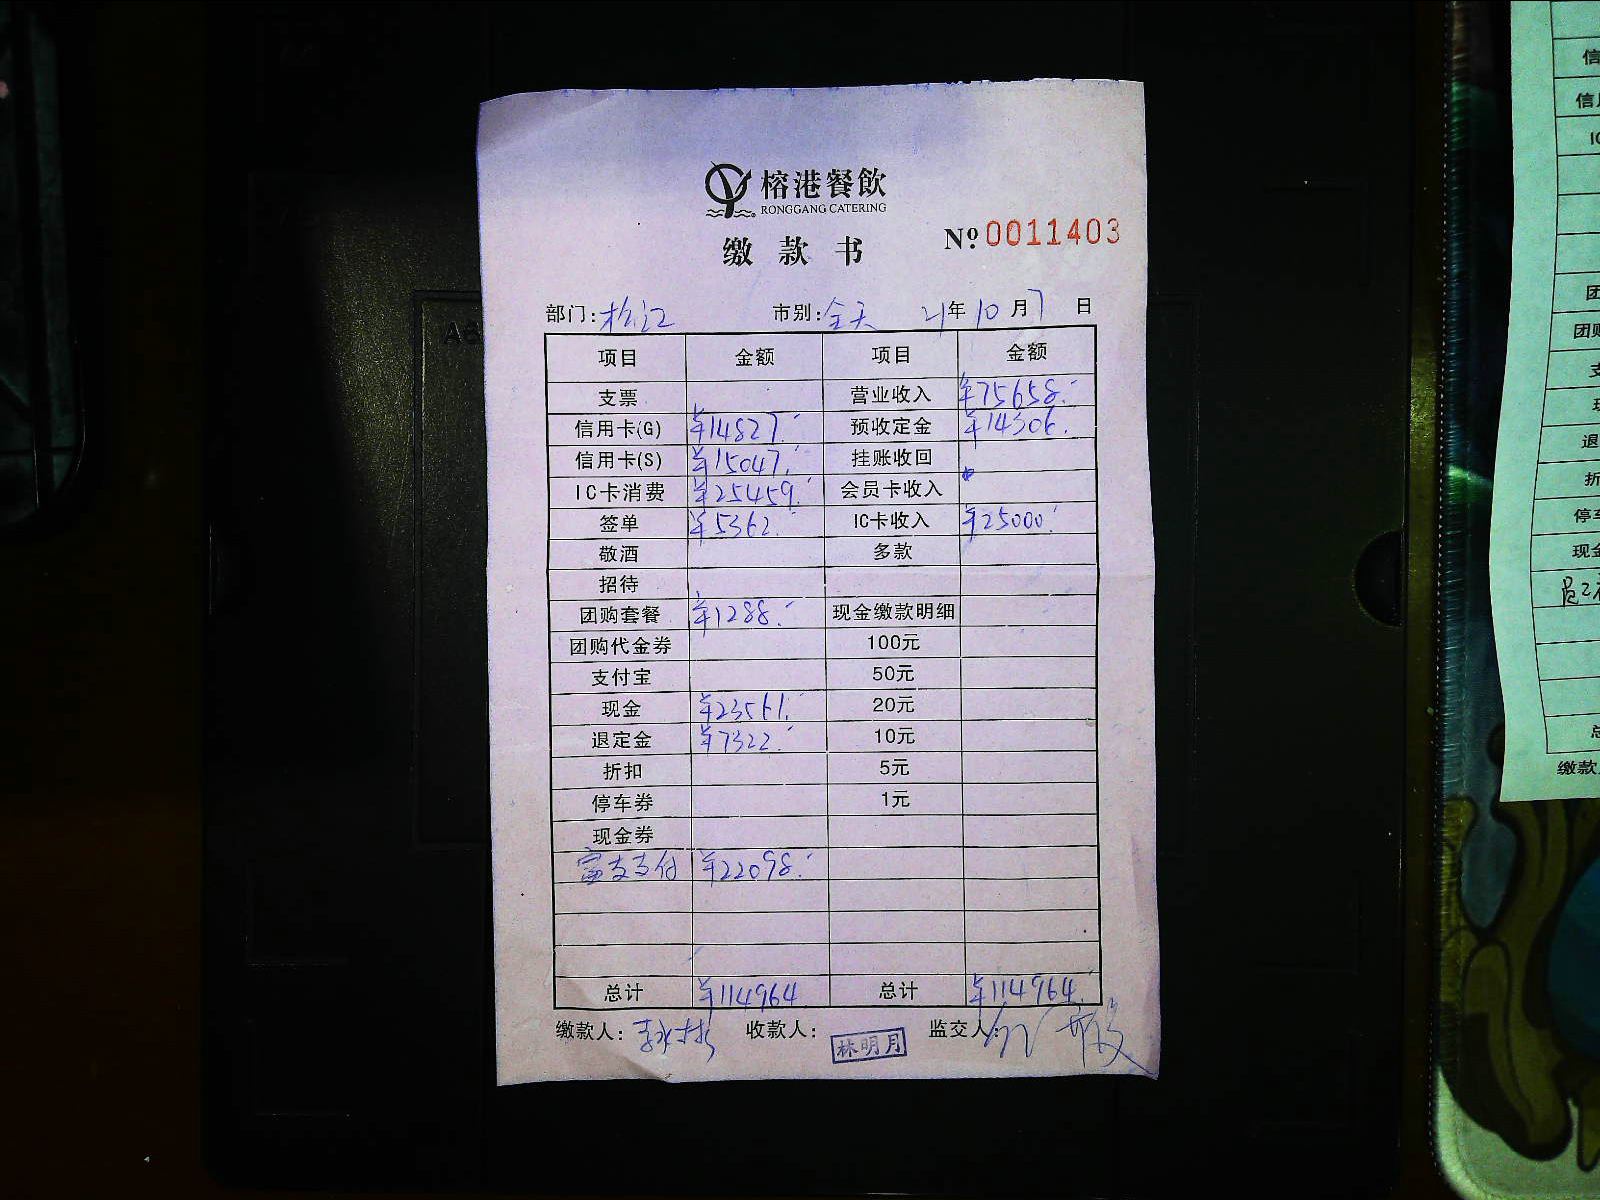 榕港餐飲
RONGGANG CATERING
缴款书
Nº 0011403
部门: 松江 市别: 全天 21年 10月 7日
项目 金额 项目 金额
支票 营业收入 ¥75658.-
信用卡(G) ¥14827.- 预收定金 ¥14306.
信用卡(S) ¥15047.- 挂账收回
IC卡消费 ¥25459.- 会员卡收入
签单 ¥5362.- IC卡收入 ¥25000.-
敬酒 多款
招待
团购套餐 ¥1288.- 现金缴款明细
团购代金券 100元
支付宝 50元
现金 ¥23561.- 20元
退定金 ¥7322.- 10元
折扣 5元
停车券 1元
现金券
富友支付 ¥22098.-
总计 ¥114964 总计 ¥114964.-
缴款人: 收款人: 林明月 监交人:
信
信用
IC
团
团购
支
现
退
折
停车
现金
总
缴款